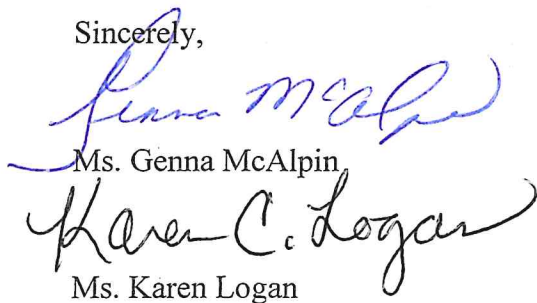 Sincerely,
Genna McAlpin
Ms. Genna McAlpin
Karen C. Logan
Ms. Karen Logan